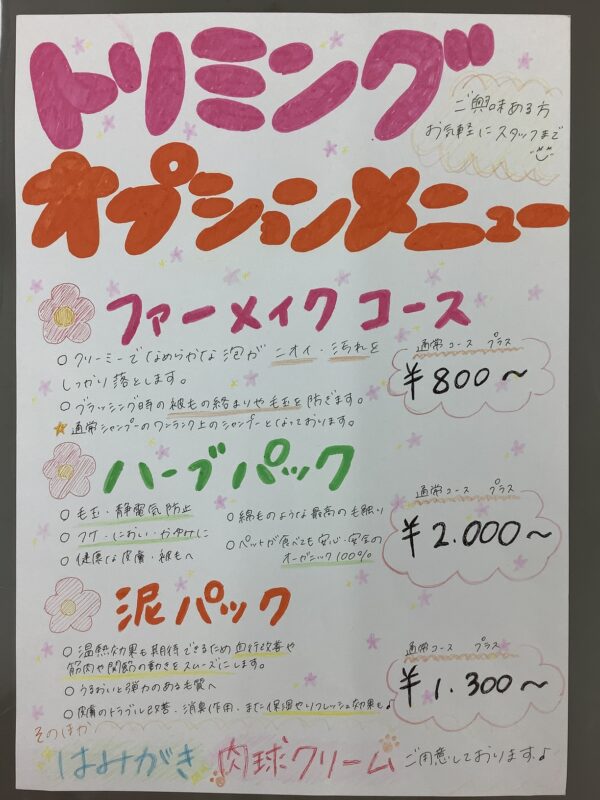 トリミング
ご興味ある方
お気軽にスタッフまで
オプションメニュー
ファーメイクコース
通常コース プラス
¥800～
○クリーミーでなめらかな泡がニオイ・汚れを
しっかり落とします。
○ブラッシング時の被毛の絡まりや毛玉を防ぎます。
☆通常シャンプーのワンランク上のシャンプーとなっております。
ハーブパック
通常コース プラス
¥2.000～
○毛玉・静電気防止
○フケ・におい・かゆみに
○健康な皮膚・被毛へ
○綿もののような最高の毛触り
○ペットが食べても安心・安全の
オーガニック100%
泥パック
通常コース プラス
¥1.300～
○温熱効果も期待できるため血行改善や
筋肉や関節の動きをスムーズにします。
○うるおいと弾力のある毛質へ
○皮膚のトラブル改善・消臭作用・また保湿やリフレッシュ効果も♪
そのほか
はみがき 肉球クリーム ご用意しております♪